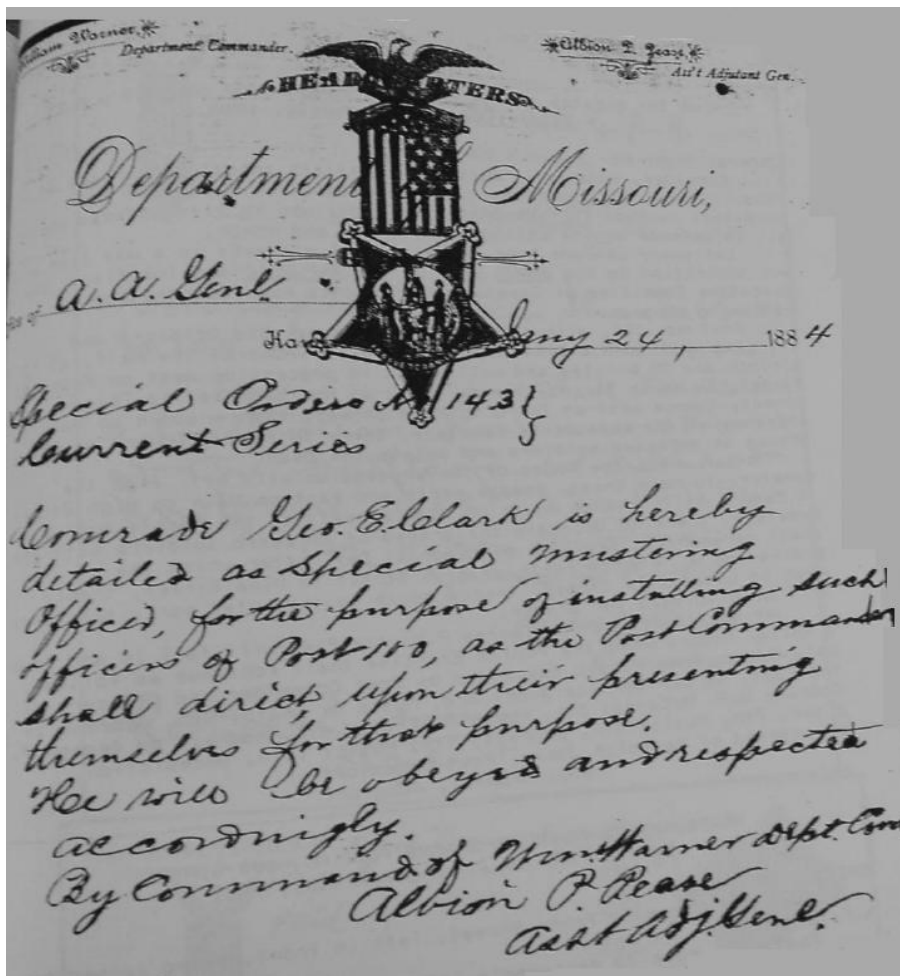 William Warner,
Department Commander.
Albion P. Pease,
Ass't Adjutant Gen.
HEADQUARTERS
Department Missouri,
of A. A. Genl
24, 1884
Special Orders No 143
Current Series
Comrade Geo. E. Clark is hereby
detailed as Special mustering
Officer, for the purpose of installing such
officers of Post 100, as the Post Commander
shall direct, upon their presenting
themselves for that purpose.
He will be obeyed and respected
accordingly.
By Command of Wm. Warner Dept. Com
Albion P. Pease
Asst Adj. Genl.